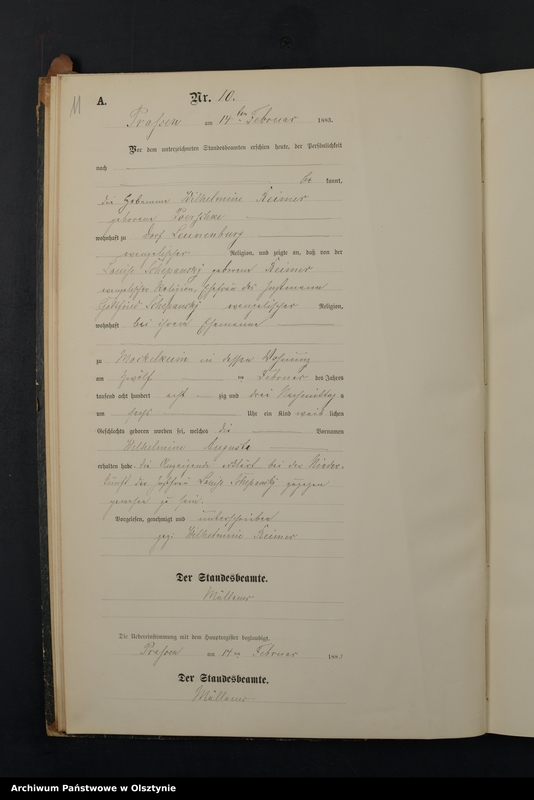 11
A.
Nr. 10.
Prassen am 14ten Februar 1883.
Vor dem unterzeichneten Standesbeamten erschien heute, der Persönlichkeit
nach
be kannt,
die Hebamme Wilhelmine Reimer
geborene
wohnhaft zu Dorf Leunenburg
evangelischer Religion, und zeigte an, daß von der
Louise Schepansky geborene Reimer
evangelischer Religion, Ehefrau des Instmann
Gottfried Schepansky evangelischer Religion,
wohnhaft bei ihrem Ehemanne
zu Markeim in dessen Wohnung
am zwölf ten Februar des Jahres
tausend acht hundert acht zig und drei Nachmittags
um sechs Uhr ein Kind weib lichen
Geschlechts geboren worden sei, welches die Vornamen
Wilhelmine Auguste
erhalten habe. die Anzeigende erklärt bei der Nieder-
kunft der Louise Schepansky zugegen
gewesen zu sein.
Vorgelesen, genehmigt und unterschrieben
gez. Wilhelmine Reimer
Der Standesbeamte.
Die Uebereinstimmung mit dem Hauptregister beglaubigt.
Prassen am 14ten Februar 1883
Der Standesbeamte.
Archiwum Państwowe w Olsztynie